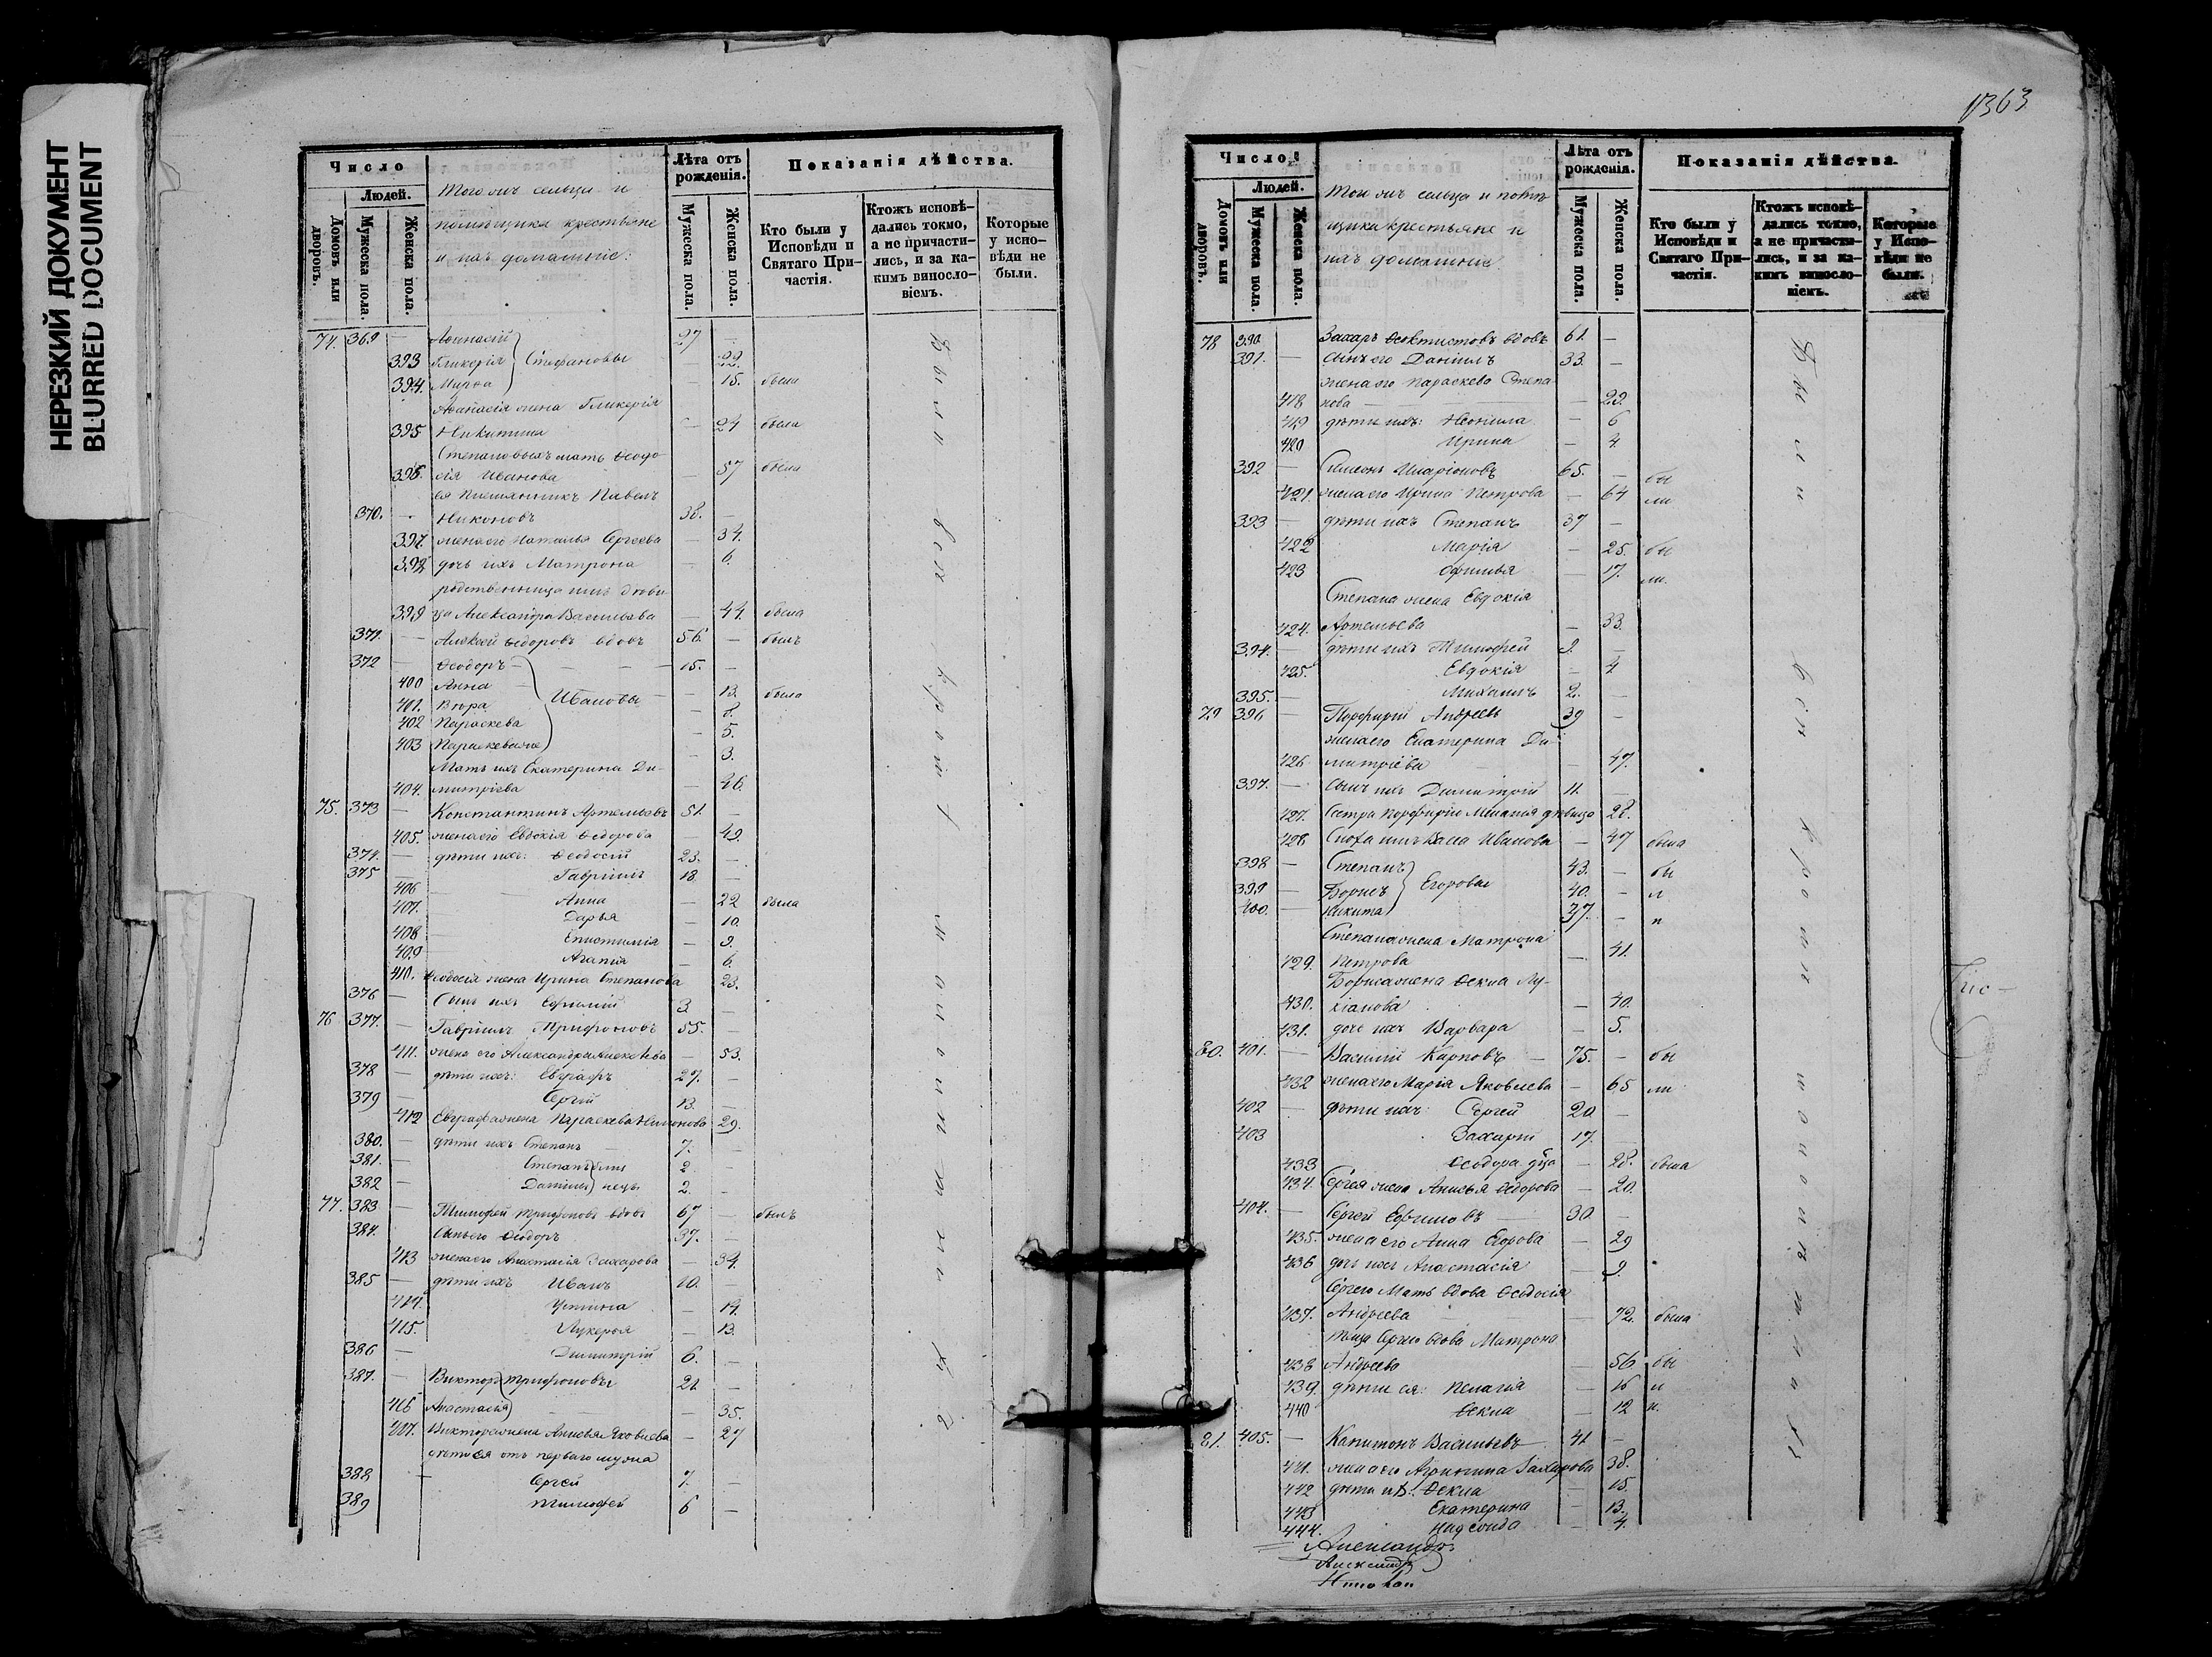 НЕРЕЗКИЙ ДОКУМЕНТ
BLURRED DOCUMENT
Число
Людей.
Домовъ или дворовъ.
Мужеска пола.
Женска пола.
Того же сельца и
помѣщика крестьяне
и ихъ домашніе:
Лѣта отъ рожденія.
Мужеска пола.
Женска пола.
Показанія дѣйства.
Кто были у Исповѣди и Святаго Причастія.
Ктожъ исповѣдались токмо, а не причастились, и за какимъ винословіемъ.
Которые у исповѣди не были.
74. 369 — Аѳанасій 27 —
393 Гликерія } Стефановы — 22.
394. Марѳа — 15. была
Аѳанасія жена Гликерія
395 Никитина — 24 была
Степановыхъ мать Ѳеодо
396. сія Иванова — 57 была
ея племянникъ Павелъ
370. — Никоновъ 38. —
397. жена его Наталья Сергеева — 34.
398 дочь ихъ Матрона — 6.
родственница имъ дѣви
399 ца Александра Васильева — 44. была
371. — Алексей Ѳедоровъ вдовъ 56. — былъ
372 — Ѳеодоръ 15. —
400 Анна — 13. была
401. Вѣра } Ивановы — 8.
402 Параскева — 5.
403 Параскева же — 3.
Мать ихъ Екатерина Ди-
404. митріева — 46.
75. 373 — Константинъ Артемьевъ 51. —
405. жена его Евдокія Ѳедорова — 49.
374. — дѣти ихъ: Ѳеодосій 23. —
375 — Гавріилъ 18. —
406 Анна — 22 была
407. Дарья — 10.
408 Епистимія — 9.
409 Агапія — 6.
410. Ѳеодосія жена Ирина Степанова 23.
376 — Сынъ ихъ Ефимій 3 —
76 377. — Гавріилъ Трифоновъ 55. —
411. жена его Александра Алексѣева — 53.
378 — дѣти ихъ: Евграфъ 27. —
379 — Сергій 13. —
412 Евграфа жена Параскева 29.
380. — дѣти ихъ: Степанъ 7. —
381. — Степанъ } близ 2 —
382 — Даніилъ } нецы 2. —
77. 383 — Тимофей Трифоновъ вдовъ 67 — былъ
384. Сынъ его Ѳеодоръ 37. —
413 жена его Анастасія Захарова — 34.
385 — дѣти ихъ Иванъ 10.
414. Устинья — 14.
415. Лукерья — 13.
386 — Димитрій 6. —
387. — Викторъ } Трифоновы 21 —
416 Анастасія — 35.
417. Виктора жена Анисья Яковлева — 27
дѣти ея отъ перваго мужа
388 — Сергей 7. —
389 Тимофей 6 —
1363
Число
Людей.
Домовъ или дворовъ.
Мужеска пола.
Женска пола.
Того же сельца и помѣ
щика крестьяне и
ихъ домашніе
Лѣта отъ рожденія.
Мужеска пола.
Женска пола.
Показанія дѣйства.
Кто были у Исповѣди и Святаго Причастія.
Ктожъ исповѣдались токмо, а не причастились, и за какимъ винословіемъ.
Которые у Исповѣди не были.
78 390 Захаръ Ѳеоктистовъ вдовъ 61. —
391. — Сынъ его Даніилъ 33. —
жена его Параскева Степа
418 нова — 29.
419 дѣти ихъ: Неонила — 6
420 Ирина — 4.
392 — Симеонъ Иларіоновъ 65. — бы
421. жена его Ирина Петрова — 64 ли
393 — дѣти ихъ Степанъ 37 —
422 Марія — 25. бы
423 Ефимья — 17. ли.
Степана жена Евдокія
424. Артемьева — 33.
394. — дѣти ихъ Тимофей 9. —
425. Евдокія — 4
395. — Михаилъ 2. —
79 396 — Порфирій Андреевъ 39 —
жена его Екатерина Ди-
426 митріева — 47.
397. — Сынъ ихъ Димитрій 11. —
427. Сестра Порфирію Меланія дѣвица 28.
428 Сноха имъ Васса Иванова — 47 была
398 — Степанъ 43. — бы
399 — Борисъ } Егоровы 40. — л
400. — Никита 37. — и
Степана жена Матрона
429. Петрова — 41.
Бориса жена Ѳекла Лу-
430. кіанова — 40.
431. дочь ихъ Варвара — 5.
80. 401. — Василій Карповъ — 75. — бы
432 жена его Марія Яковлева — 65 ли
402 — дѣти ихъ: Сергей 20 —
403 Захарій 17. —
433 Ѳеодора дца — 28. была
434. Сергея жена Анисья Ѳедорова — 20.
404. — Сергей Ефимовъ 30 —
435. жена его Анна Егорова — 29
436 дочь ихъ Анастасія — 9.
Сергею Мать вдова Ѳеодосія
437. Андреева — 72. была
теща Сергею вдова Матрона
438 Андреева — 56 бы
439. дѣти ея: Пелагія — 16 л
440 Ѳекла — 12 и.
81. 405. — Капитонъ Васильевъ 41 —
441. жена его Агрипина Захарова 38.
442 дѣти ихъ: Ѳекла — 15.
443 Екатерина — 13.
444. — 4.
Александръ